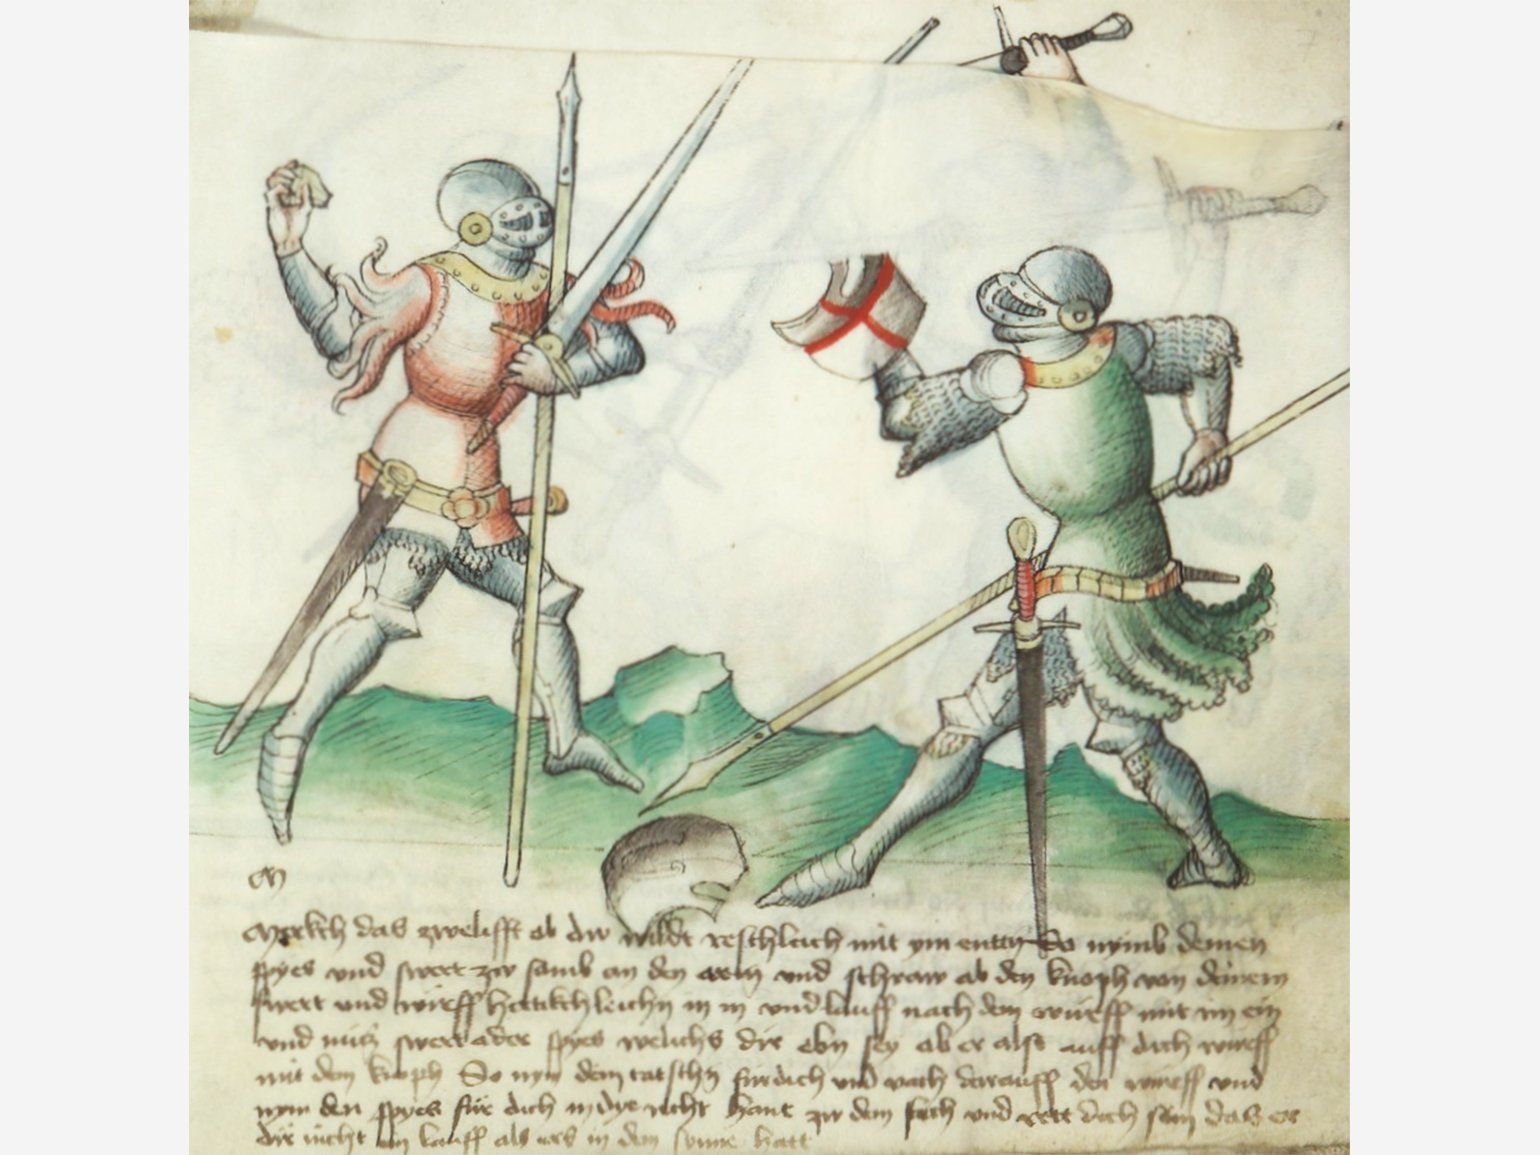 M
Merckh das zwelifft ob dw wildt reschleich mit ym enten So nymb deinen
spyes und swert zw samb an den arm und schraw ab den knoph von deinem
swert und wirff hertikchleichn in in und lauff nach dem wurff mit im ein
und nucz swert oder spyes welichs dir ebn sey ob er alst auff dich wirff
mit dem knoph So nym dem tatschn fur dich und vach darauff den wirff und
nym den spyes für dich in dye recht hant zw dem stich und rett dich sein das er
dir nicht ein lauff als ers in dem synne hatt